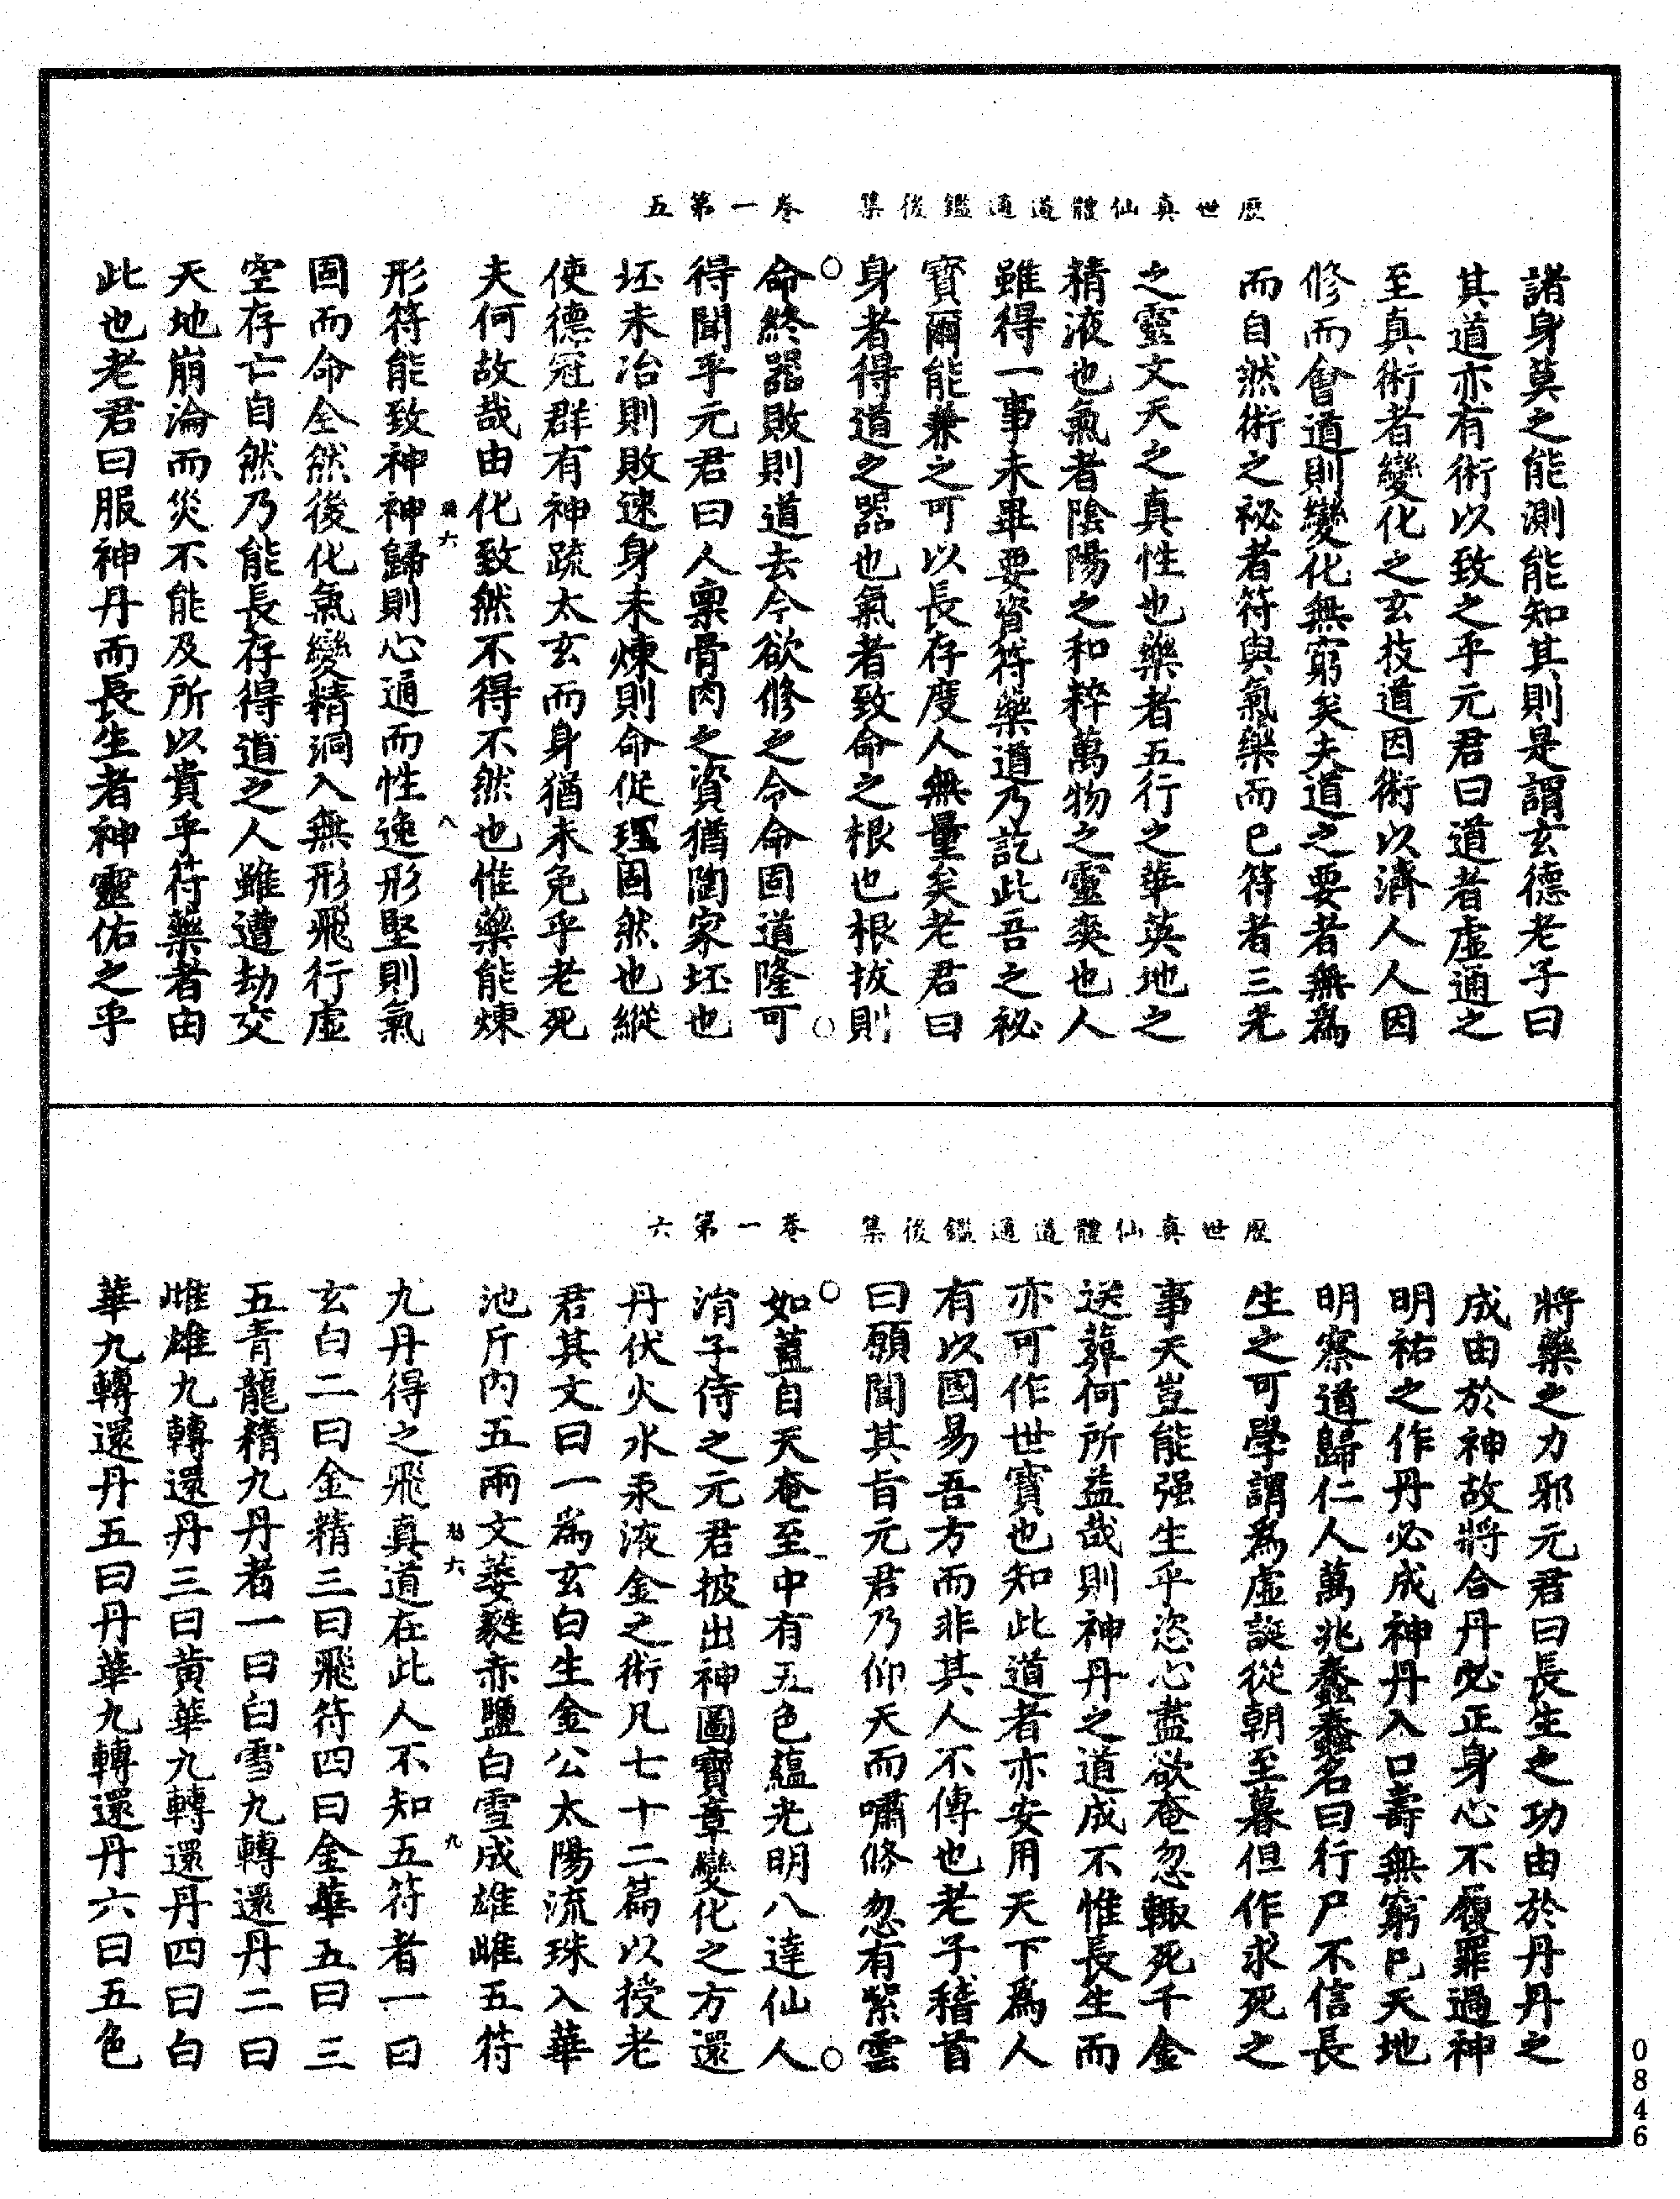 歷世真仙體道通鑑後集　卷一第五
諸身莫之能測能知其則是謂玄德老子曰
其道亦有術以致之乎元君曰道者虛通之
至真術者變化之玄技道因術以濟人人因
修而會道則變化無窮矣夫道之要者無為
而自然術之祕者符與氣藥而已符者三光
之靈文天之真性也藥者五行之華英地之
精液也氣者陰陽之和粹萬物之靈爽也人
雖得一事未畢要資符藥道乃訖此吾之祕
寶爾能兼之可以長存度人無量矣老君曰
身者得道之器也氣者致命之根也根拔則
命終器敗則道去今欲修之令命固道隆可
得聞乎元君曰人稟骨肉之資猶陶家坯也
坯未冶則敗速身未煉則命促理固然也縱
使德冠群有神疏太玄而身猶未免乎老死
夫何故哉由化致然不得不然也惟藥能煉
六
八
形符能致神神歸則心通而性逸形堅則氣
固而命全然後化氣變精洞入無形飛行虛
空存亡自然乃能長存得道之人雖遭劫交
天地崩淪而災不能及所以貴乎符藥者由
此也老君曰服神丹而長生者神靈佑之乎
歷世真仙體道通鑑後集　卷一第六
將藥之力邪元君曰長生之功由於丹丹之
成由於神故將合丹必正身心不履罪過神
明祐之作丹必成神丹入口壽無窮已天地
明察道歸仁人萬兆蠢蠢名曰行尸不信長
生之可學謂為虛誕從朝至暮但作求死之
事天豈能強生乎恣心盡欲奄忽輙死千金
送葬何所益哉則神丹之道成不惟長生而
亦可作世寶也知此道者亦安用天下為人
有以國易吾方而非其人不傳也老子稽首
曰願聞其旨元君乃仰天而嘯倏忽有紫雲
如蓋自天奄至中有五色蘊光明八達仙人
涓子侍之元君披出神圖寶章變化之方還
丹伏火水汞液金之術凡七十二篇以授老
君其文曰一為玄白生金公太陽流珠入華
池斤內五兩文蔞蕤赤鹽白雪成雄雌五符
六
九
九丹得之飛真道在此人不知五符者一曰
玄白二曰金精三曰飛符四曰金華五曰三
五青龍精九丹者一曰白雪九轉還丹二曰
雌雄九轉還丹三曰黃華九轉還丹四曰白
華九轉還丹五曰丹華九轉還丹六曰五色
0846